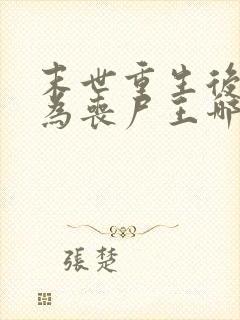 末世重生後
為喪尸王哪
張楚